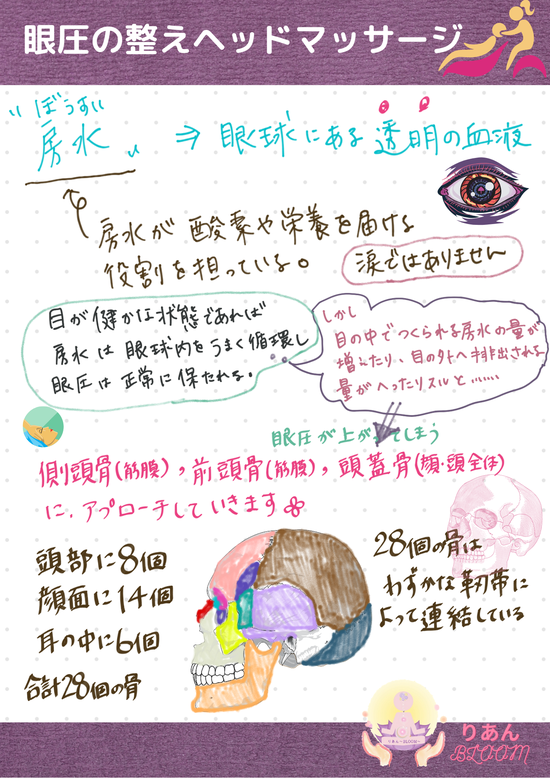 眼圧の整えヘッドマッサージ
"ぼうすい
房水" ⇒ 眼球にある透明の血液
房水が酸素や栄養を届ける
役割を担っている。
涙ではありません
目が健かな状態であれば
房水は眼球内をうまく循環し
眼圧は正常に保たれる。
しかし
目の中でつくられる房水の量が
増えたり、目の外へ排出される
量がへったりスルと……
眼圧が上がってしまう
側頭骨(筋膜)，前頭骨(筋膜)，頭蓋骨(顔・頭全体)
に、アプローチしていきます
頭部に8個
顔面に14個
耳の中に6個
合計28個の骨
28個の骨は
わずかな靭帯に
よって連結している
りあん
BLOOM